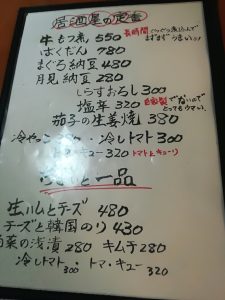 居酒屋の定番
牛もつ煮 550 長時間ぐつぐつ煮込んで
ますますうまい
ばくだん 780
まぐろ納豆 480
月見納豆 280
しらすおろし 300
塩辛 320 自家製でないので
とってもウマい
茄子の生姜焼 380
冷やっこ 冷しトマト 300
キュー 320 トマトとキューリ
一品
生ハムとチーズ 480
チーズと韓国のり 430
菜の浅漬 280 キムチ 280
冷しトマト 300 ・トマ・キュー 320